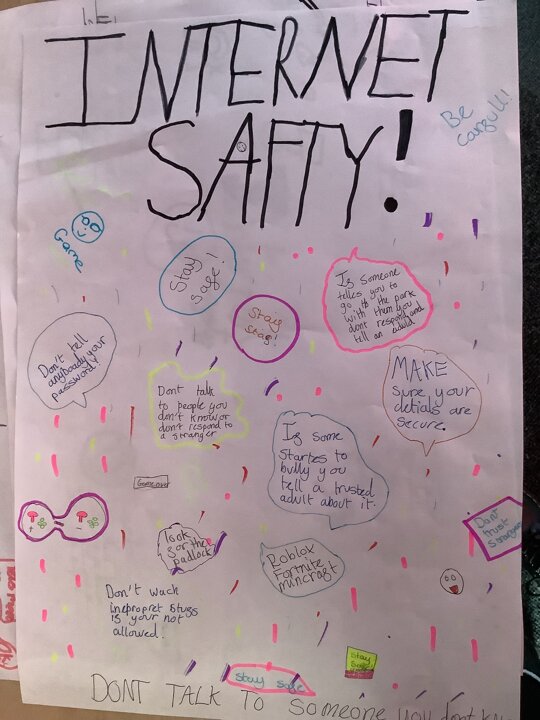 INTERNET
SAFTY!
Be
carfull!
Game
Stay
safe!
Stay
Saf!
If someone
telles you to
go to the park
with them you
dont respond and
tell an adult
Don't tell
anyboady your
password!
Dont talk
to people you
don't know or
don't respond to
a stranger
MAKE
sure your
detials are
secure.
If some
startes to
bully you
tell a trusted
adult about it.
Game over
Dont
trust
look
for the
padlock
Roblox
Fortnite
mincraft
Don't wach
inepropret stuffs
if your not
allowed.
Stay
Safe
stay safe
DONT TALK TO someone you dont